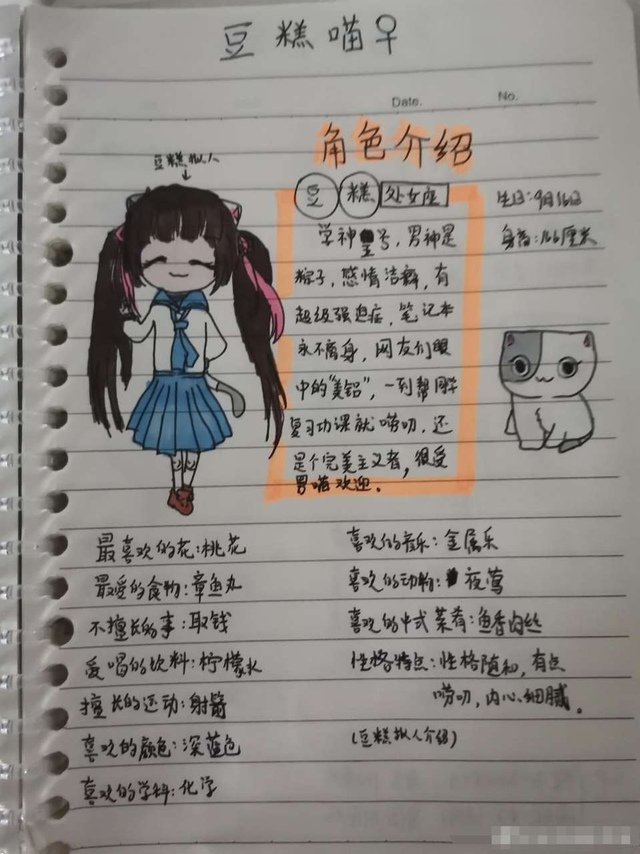 豆糕喵♀
Date.
No.
角色介绍
豆糕拟人
豆糕 处女座
生日:9月16日
学神1号，男神是
身高:166厘米
猴子，感情洁癖，有
超级强迫症，笔记本
永不离身，网友们眼
中的“美铝”，一到帮同学
复习功课就唠叨，还
是个完美主义者，很受
男喵欢迎。
最喜欢的花:桃花
喜欢的音乐:金属乐
最爱的食物:章鱼丸
喜欢的动物:夜莺
不擅长的事:取钱
喜欢的中式菜肴:鱼香肉丝
爱喝的饮料:柠檬水
性格特点:性格随和，有点
唠叨，内心细腻。
擅长的运动:射箭
喜欢的颜色:深蓝色
(豆糕拟人介绍)
喜欢的学科:化学